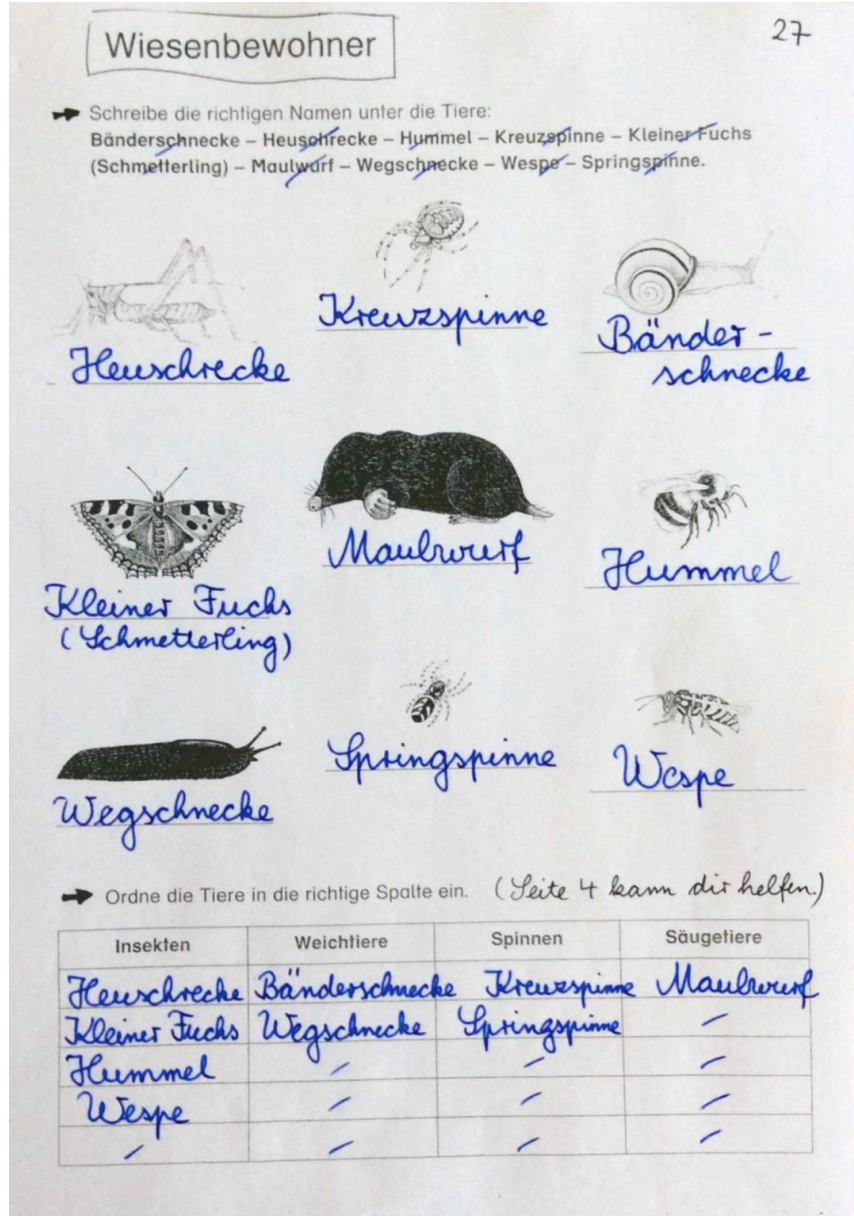 Wiesenbewohner
27
Schreibe die richtigen Namen unter die Tiere:
Bänderschnecke – Heuschrecke – Hummel – Kreuzspinne – Kleiner Fuchs
(Schmetterling) – Maulwurf – Wegschnecke – Wespe – Springspinne.
Heuschrecke
Kreuzspinne
Bänder-
schnecke
Kleiner Fuchs
(Schmetterling)
Maulwurf
Hummel
Wegschnecke
Springspinne
Wespe
Ordne die Tiere in die richtige Spalte ein. (Seite 4 kann dir helfen.)
Insekten Weichtiere Spinnen Säugetiere
Heuschrecke Bänderschnecke Kreuzspinne Maulwurf
Kleiner Fuchs Wegschnecke Springspinne –
Hummel – – –
Wespe – – –
– – – –